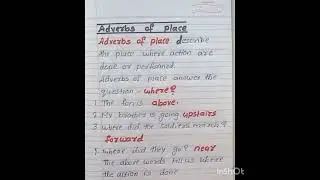 Adverbs of place
Adverbs of place describe
the place where action are
done or performed
Adverbs of place answer the
question - where?
1 The fan is above.
2 My brother is going upstairs
3 Where did the soldiers march?
forward
5 Where did they go? near
The above words tell us where
the action is done
InShOt